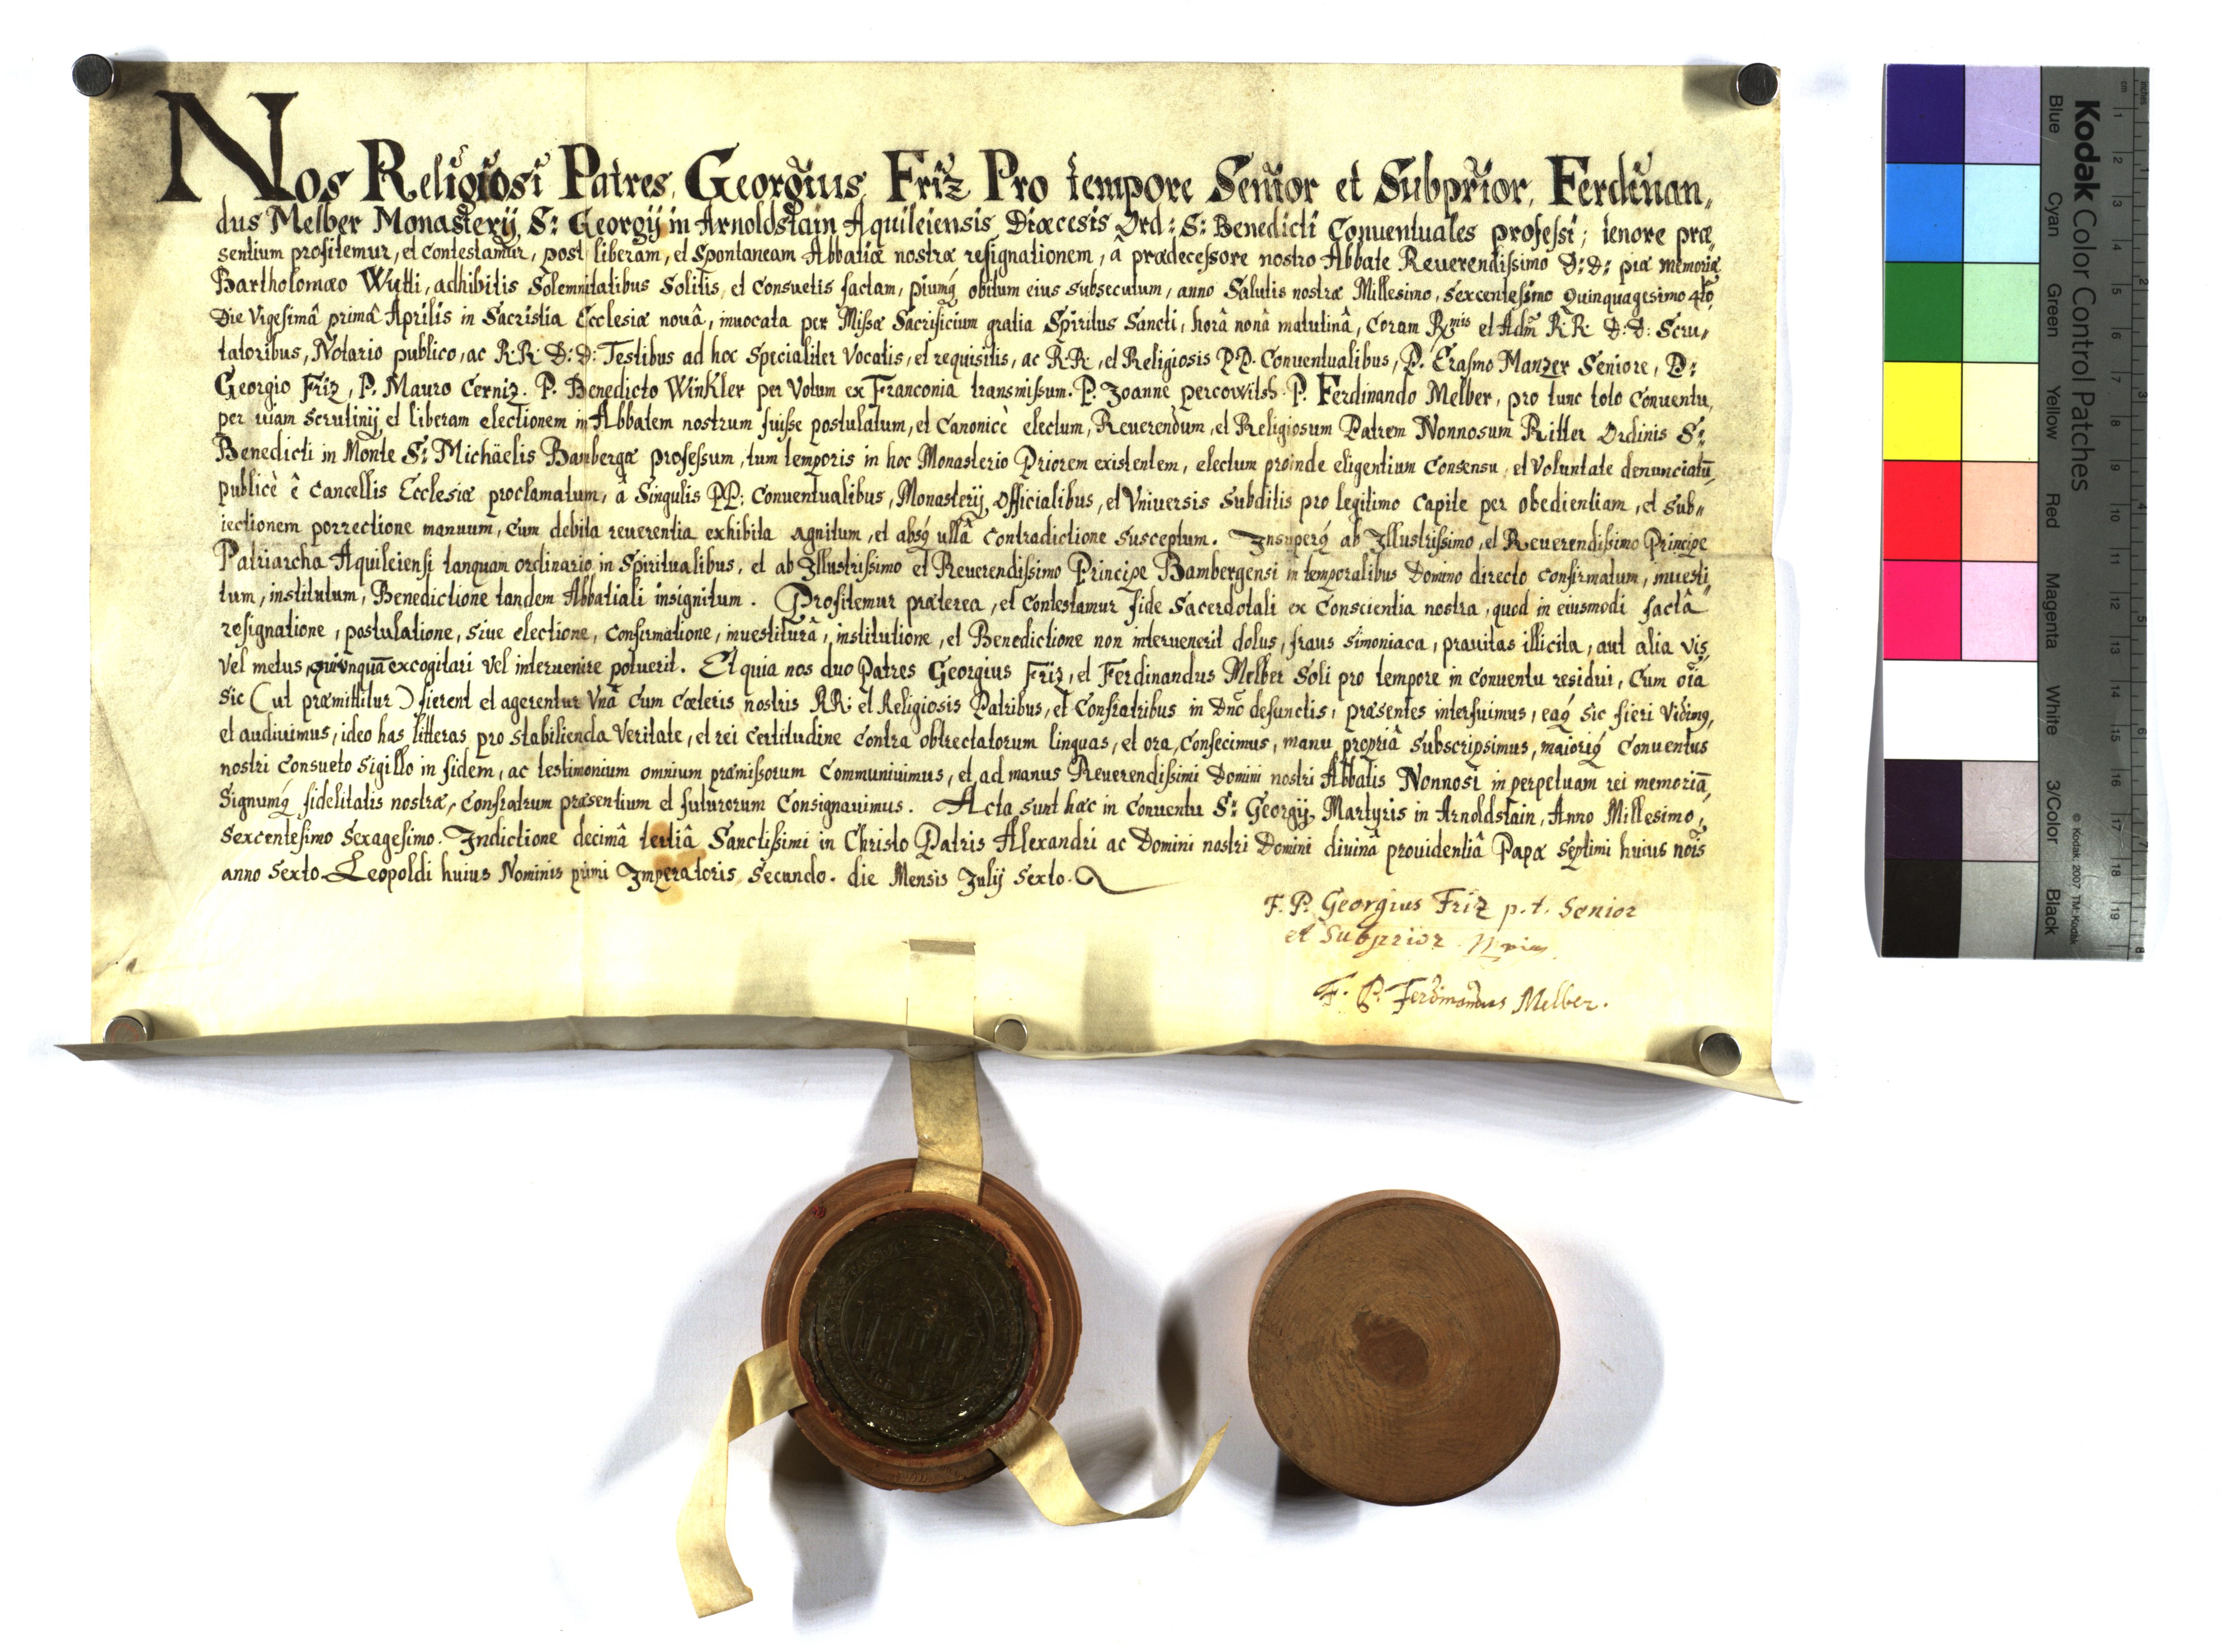 Nos Religiosi Patres, Georgius Friz Pro tempore Senior et Subprior, Ferdinan„
dus Melber Monasterij S: Georgij in Arnoldstain Aquileiensis Diœcesis Ord: S: Benedicti Conuentuales professi; tenore præ„
sentium profitemur, et contestamur, post liberam, et spontaneam Abbatiæ nostræ resignationem, â prædecessore nostro Abbate Reuerendissimo D: D: piæ memoriæ
Bartholomæo Wutti, adhibitis Solemnitatibus Solitis, et consuetis factam, piumq́ obitum eius subsecutum, anno Salutis nostræ Millesimo, sexcentesimo quinquagesimo 4to
Die Vigesimâ primâ Aprilis in Sacristia Ecclesiæ nouâ, inuocata per Missæ Sacrificium gratia Spiritus Sancti, horâ nonâ matutinâ, coram Rmis et Adm̃ R:R: D: D: Scru„
tatoribus, Notario publico, ac R:R: D: D: Testibus ad hoc specialiter vocatis, et requisitis, ac R:R:, et Religiosis P.P. Conuentualibus, P. Erasmo Manzer Seniore, P:
Georgio Friz, P. Mauro Cerniz. P. Benedicto Winkler per Votum ex Franconia transmissum. P. Joanne percowitsh. P. Ferdinando Melber, pro tunc toto conuentu,
per uiam scrutinij et liberam electionem in Abbatem nostrum fuisse postulatum, et canonicè electum, Reuerendum, et Religiosum Patrem Nonnosum Ritter Ordinis S:
Benedicti in Monte S: Michäelis Bambergæ professum, tum temporis in hoc Monasterio Priorem existentem, electum proinde eligentium consensu, et voluntate denunciatũ
publicè ê cancellis Ecclesiæ proclamatum, â Singulis PP: Conuentualibus, Monasterij officialibus, et Vniuersis subditis pro legitimo capite per obedientiam, et sub„
iectionem porrectione manuum, cum debita reuerentia exhibita agnitum, et absq́ ullâ contradictione susceptum. Insuperq́ ab Illustrissimo, et Reuerendissimo Principe
Patriarcha Aquileiensi tanquam ordinario in Spiritualibus, et ab Illustrissimo et Reuerendissimo Principe Bambergensi in temporalibus Domino directo confirmatum, inuesti„
tum, institutum, Benedictione tandem Abbatiali insignitum. Profitemur præterea, et contestamur fide sacerdotali ex conscientia nostra, quod in eiusmodi factâ
resignatione, postulatione, siue electione, confirmatione, inuestiturâ, institutione, et Benedictione non interuenerit dolus, fraus simoniaca, prauitas illicita, aut alia vis,
vel metus, excogitari vel interuenire potuerit. Et quia nos duo Patres Georgius Friz, et Ferdinandus Melber soli pro tempore in conuentu residui, cum oĩa
sic (ut præmittitur) fierent et agerentur vnâ cum cæteris nostris RR: et Religiosis Patribus, et Confratribus in Dnõ defunctis, præsentes interfuimus, eaq́ sic fieri vidimq,
et audiuimus, ideo has litteras pro stabilienda veritate, et rei certitudine contra obtrectatorum linguas, et ora, confecimus, manu propriâ subscripsimus, maioriq́ Conuentus
nostri consueto sigillo in fidem, ac testimonium omnium præmissorum communiuimus, et, ad manus Reuerendissimi Domini nostri Abbatis Nonnosi in perpetuam rei memoriã,
Signumq́ fidelitatis nostræ, confratrum præsentium et futurorum consignauimus. Acta sunt hæc in conuentu S: Georgij Martyris in Arnoldstain, Anno Millesimo,
sexcentesimo sexagesimo. Indictione decimâ tertiâ Sanctissimi in Christo Patris Alexandri ac Domini nostri Domini diuinâ prouidentiâ Papæ Septimi huius nois
anno sexto. Leopoldi huius Nominis primi Imperatoris secundo. die Mensis Julij sexto.
F. P. Georgius Friz p. t. Senior
et Subprior
F. P. Ferdinandus Melber.
Kodak Color Control Patches
Blue Cyan Green Yellow Red Magenta White 3/Color Black
© Kodak, 2007 TM: Kodak
inches 1 2 3 4 5 6 7 8
cm 1 2 3 4 5 6 7 8 9 10 11 12 13 14 15 16 17 18 19